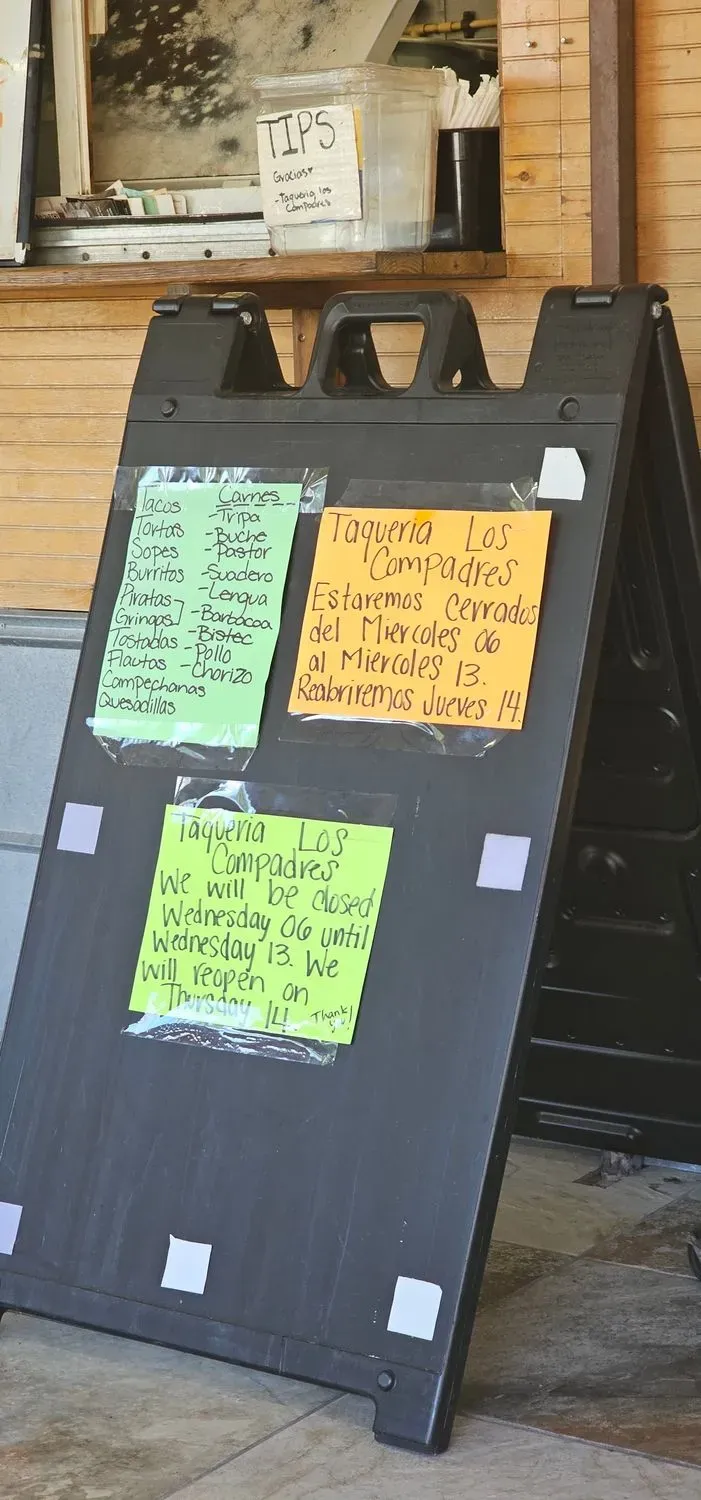 TIPS
Gracias♥
-Taqueria los
Compadres
Tacos
Tortas
Sopes
Burritos
Piratas
Gringas
Tostadas
Flautas
Campechanas
Quesadillas
Carnes
-Tripa
-Buche
-Pastor
-Suadero
-Lengua
-Barbacoa
-Bistec
-Pollo
-Chorizo
Taqueria Los
Compadres
Estaremos Cerrados
del Miercoles 06
al Miercoles 13.
Reabriremos Jueves 14.
Taqueria Los
Compadres
We will be closed
Wednesday 06 until
Wednesday 13. We
will reopen on
Thursday 14.
Thank
you!